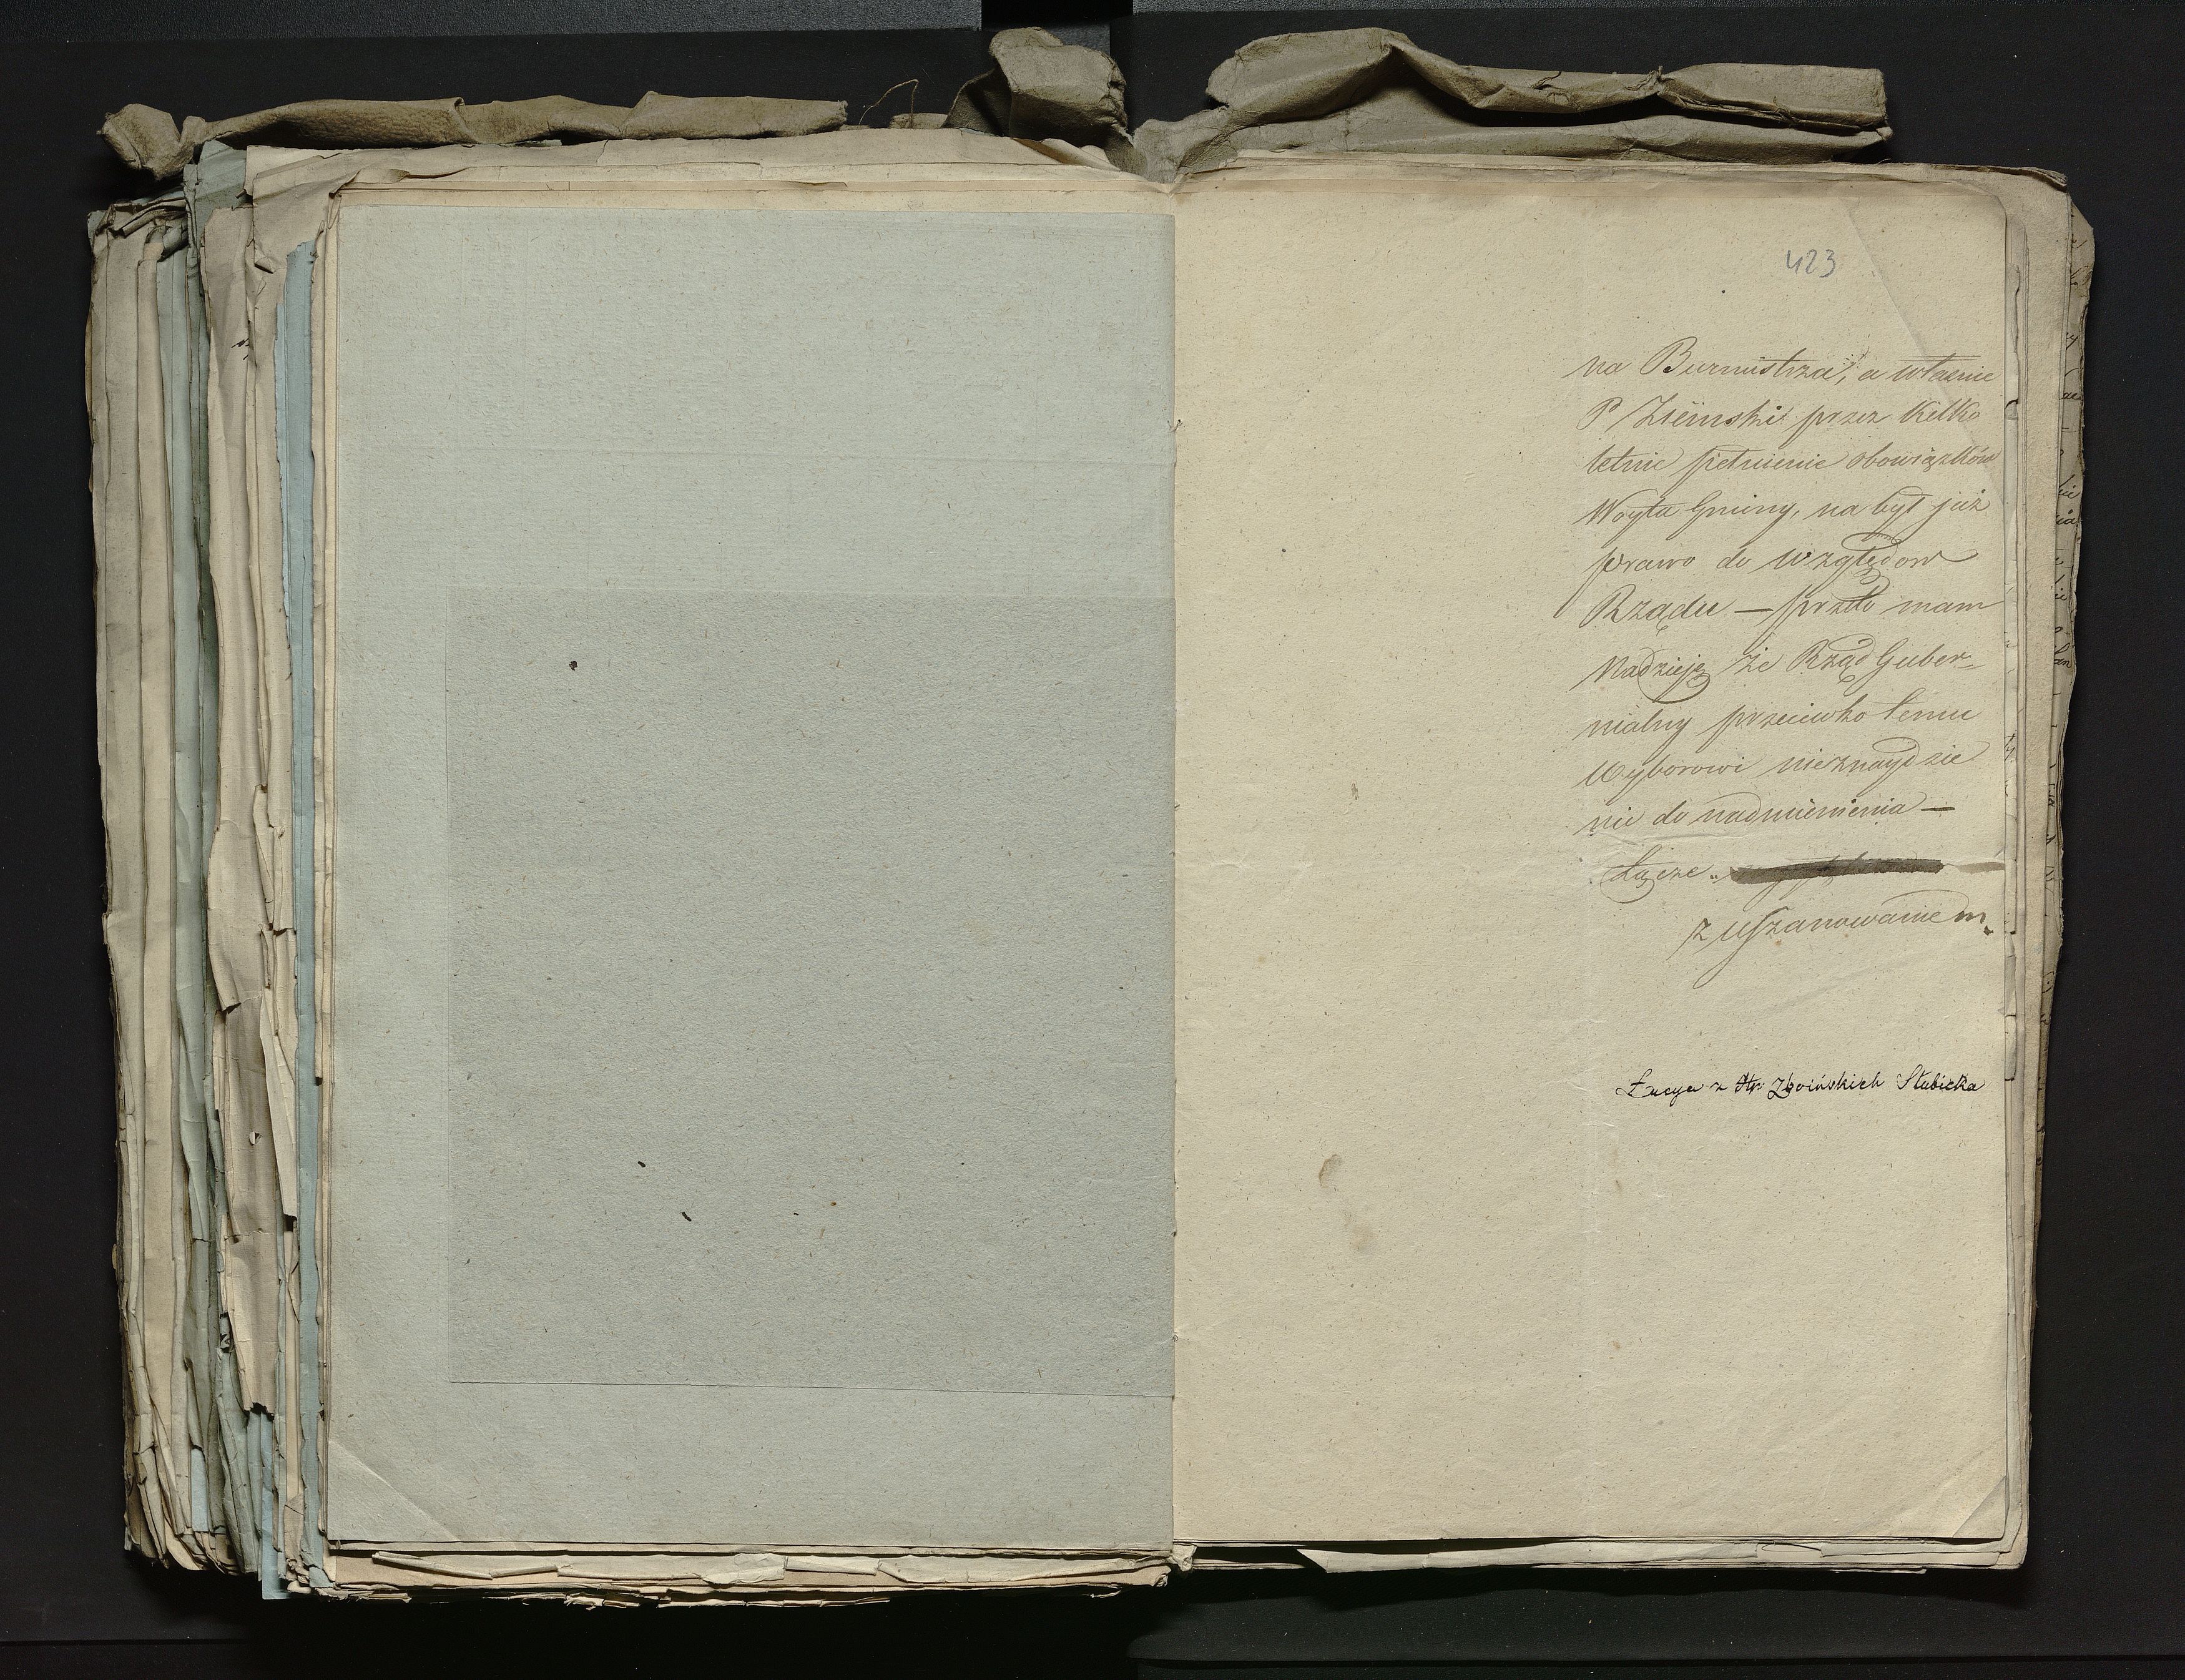 423
na Burmistrza, a własnie
P Ziemski przez kilko
letnie pełnienie obowiązków
Woyta Gminy, na był już
prawo do względow
Rządu — przeto mam
Nadzieję że Rząd Guber
nialny przeciwko temu
Wyborowi nieznaydzie
nic do nadmienienia —
Łączę
z uszanowaniem
Łucya z Hr: Zboińskich Słubicka